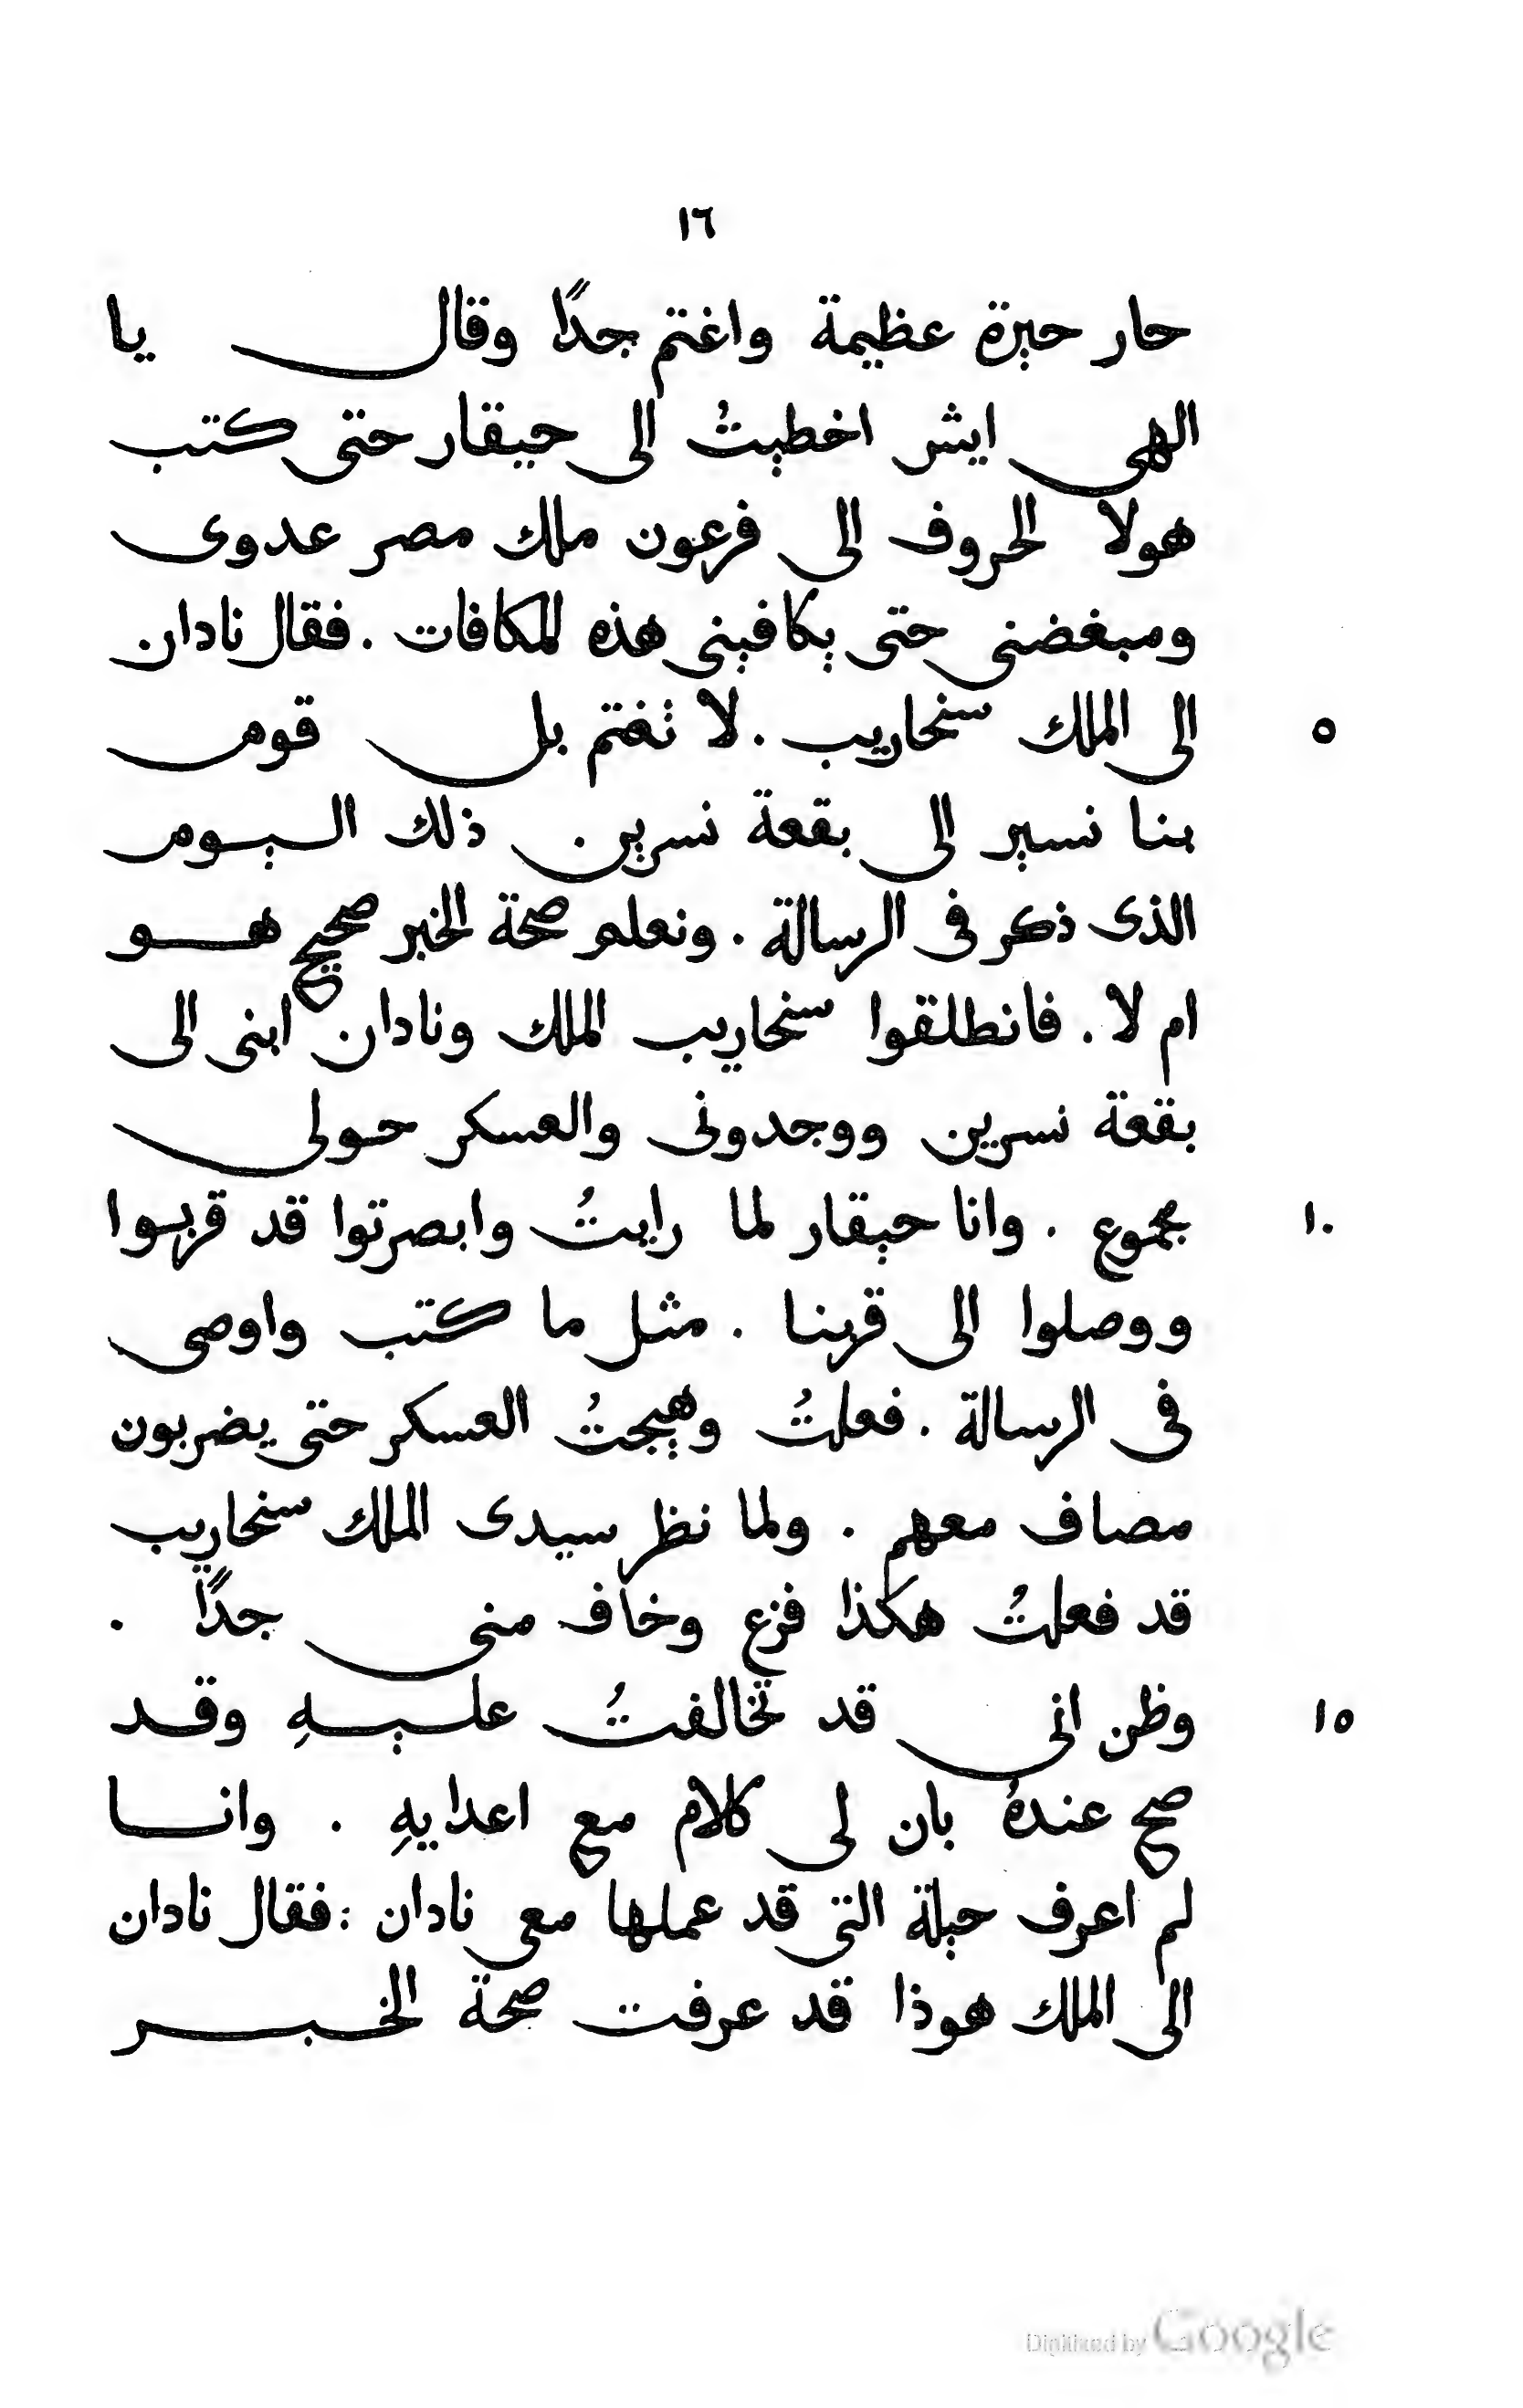 ١٦
حار حيرة عظيمة واغتم جدًا وقال يا
الهى ايش اخطيتُ الى حيقار حتى كتب
هولا الحروف الى فرعون ملك مصر عدوى
ومبغضنى حتى يكافينى هذه المكافات . فقال نادان
الى الملك سنحاريب . لا تغتم بل قوم ٥
بنا نسير الى بقعة نسرين ذلك اليوم
الذى ذكر فى الرسالة . ونعلم صحة الخبر صحيح هو
ام لا . فانطلقوا سنحاريب الملك ونادان ابنى الى
بقعة نسرين ووجدونى والعسكر حولى
مجموع . وانا حيقار لما رايتُ وابصرتوا قد قربوا ١٠
ووصلوا الى قربنا . مثل ما كتب واوصى
فى الرسالة . فعلتُ وهيجتُ العسكر حتى يضربون
مصاف معهم . ولما نظر سيدى الملك سنحاريب
قد فعلتُ هكذا فزع وخاف منى جدًا .
وظن انى قد تخالفتُ عليهِ وقد ١٥
صح عندهُ بان لى كلام مع اعدايهِ . وانا
لم اعرف حيلة التى قد عملها معى نادان : فقال نادان
الى الملك هوذا قد عرفت صحة الخبر
Digitized by Google